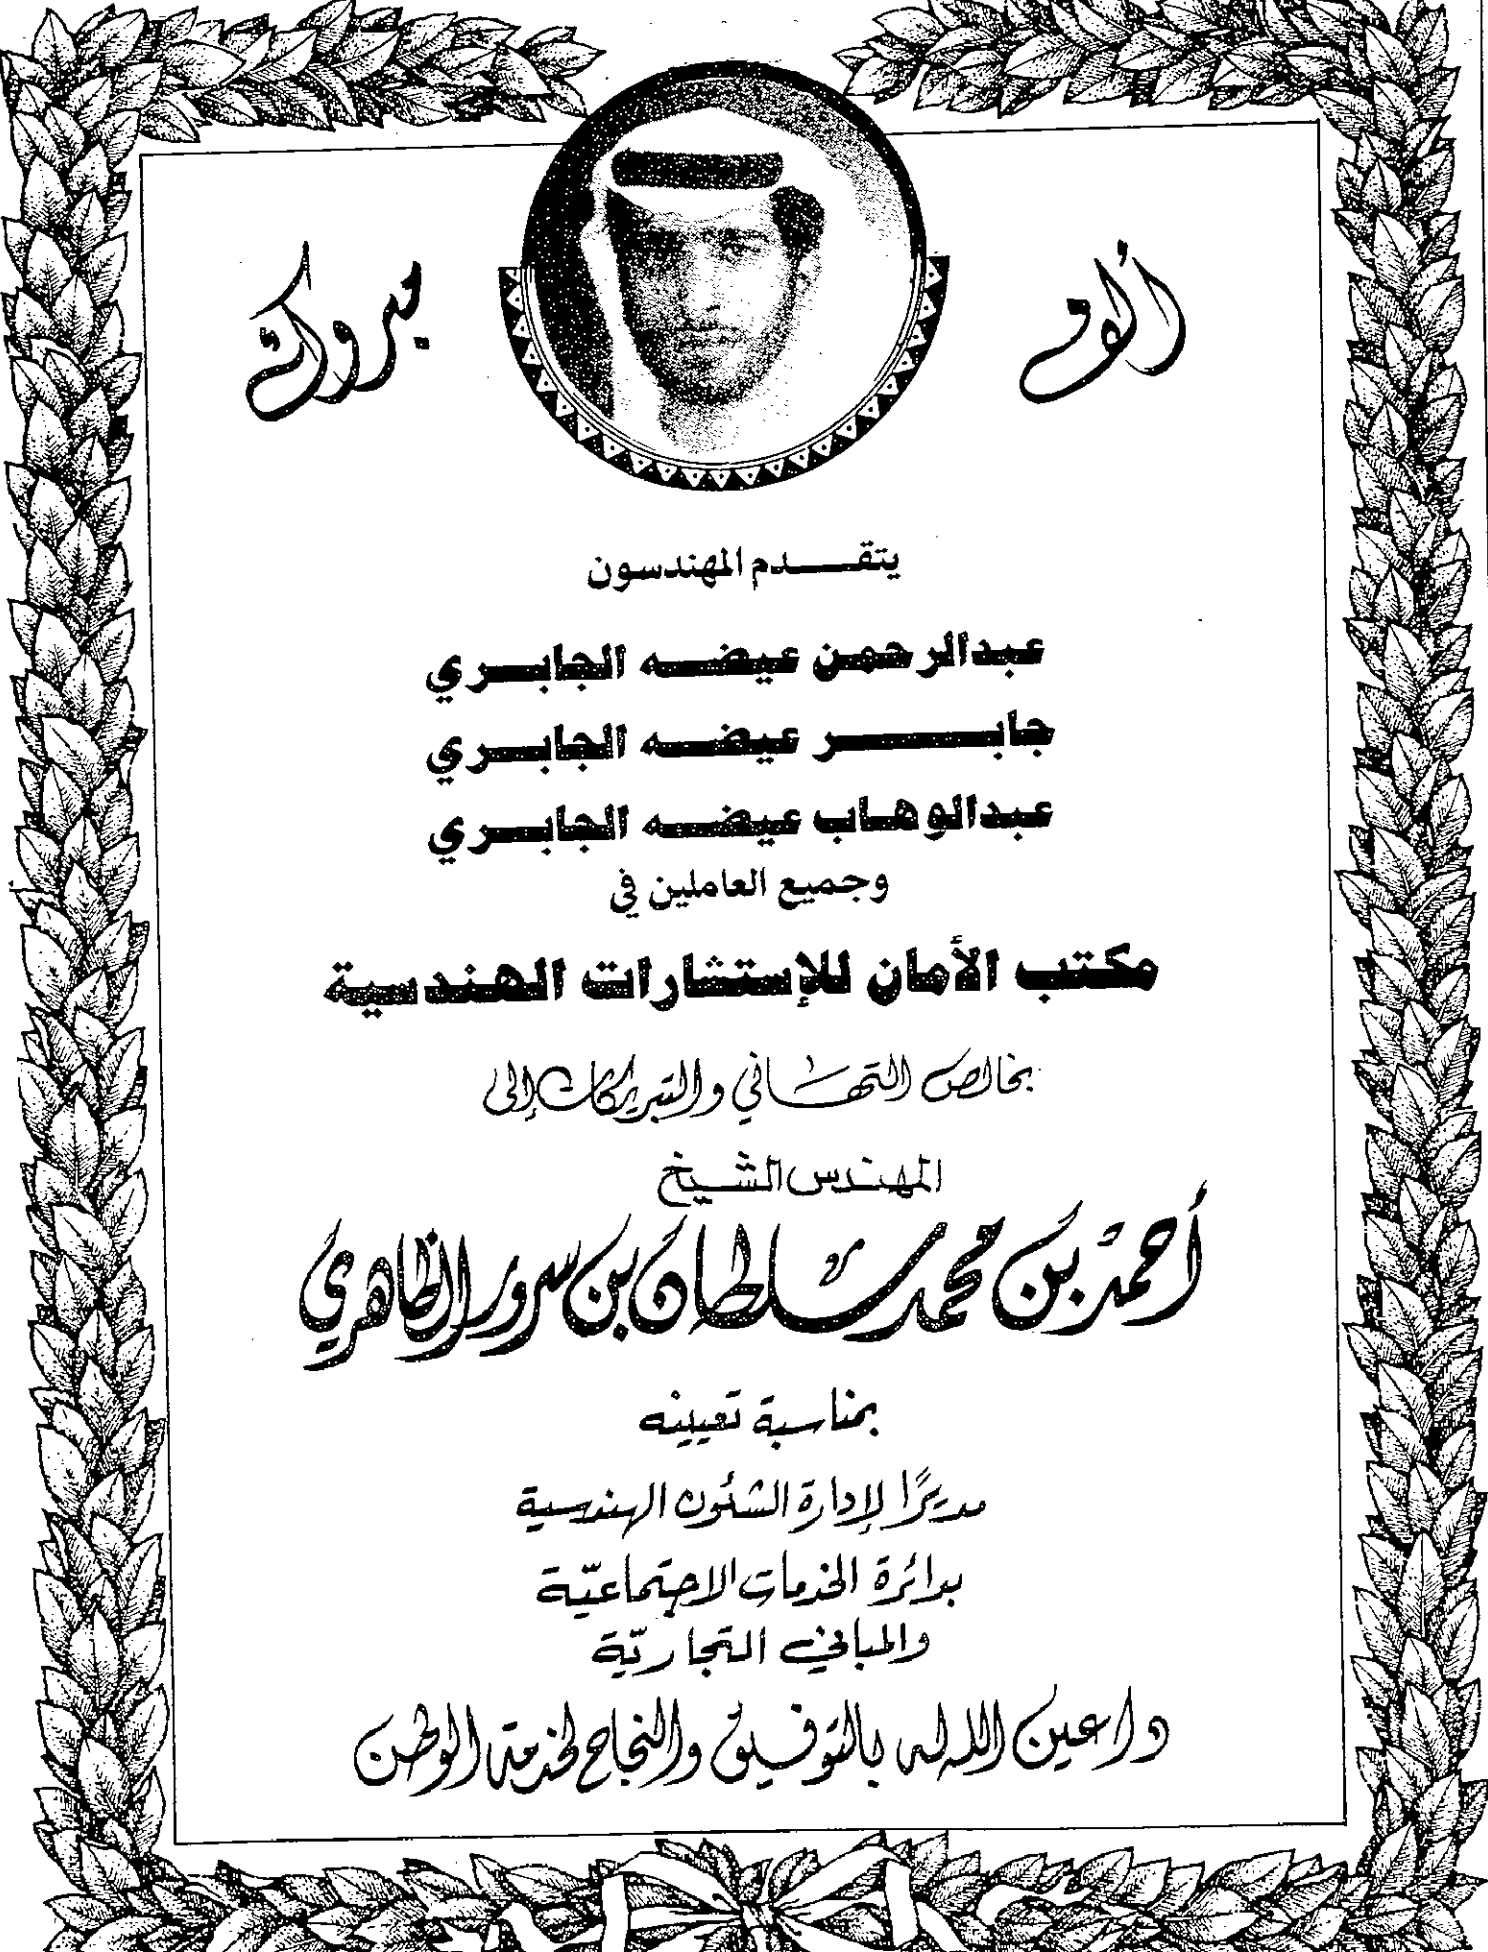 ألف مبروك
يتقدم المهندسون
عبدالرحمن عيضه الجابري
جابر عيضه الجابري
عبدالوهاب عيضه الجابري
وجميع العاملين في
مكتب الأمان للإستشارات الهندسية
بخالص التهاني والتبريكات إلى
المهندس الشيخ
أحمد بن محمد سلطان بن سرور الظاهري
بمناسبة تعيينه
مديرًا لإدارة الشئون الهندسية
بدائرة الخدمات الاجتماعيّة
والمباني التجاريّة
داعين الله له بالتوفيق والنجاح لخدمة الوطن